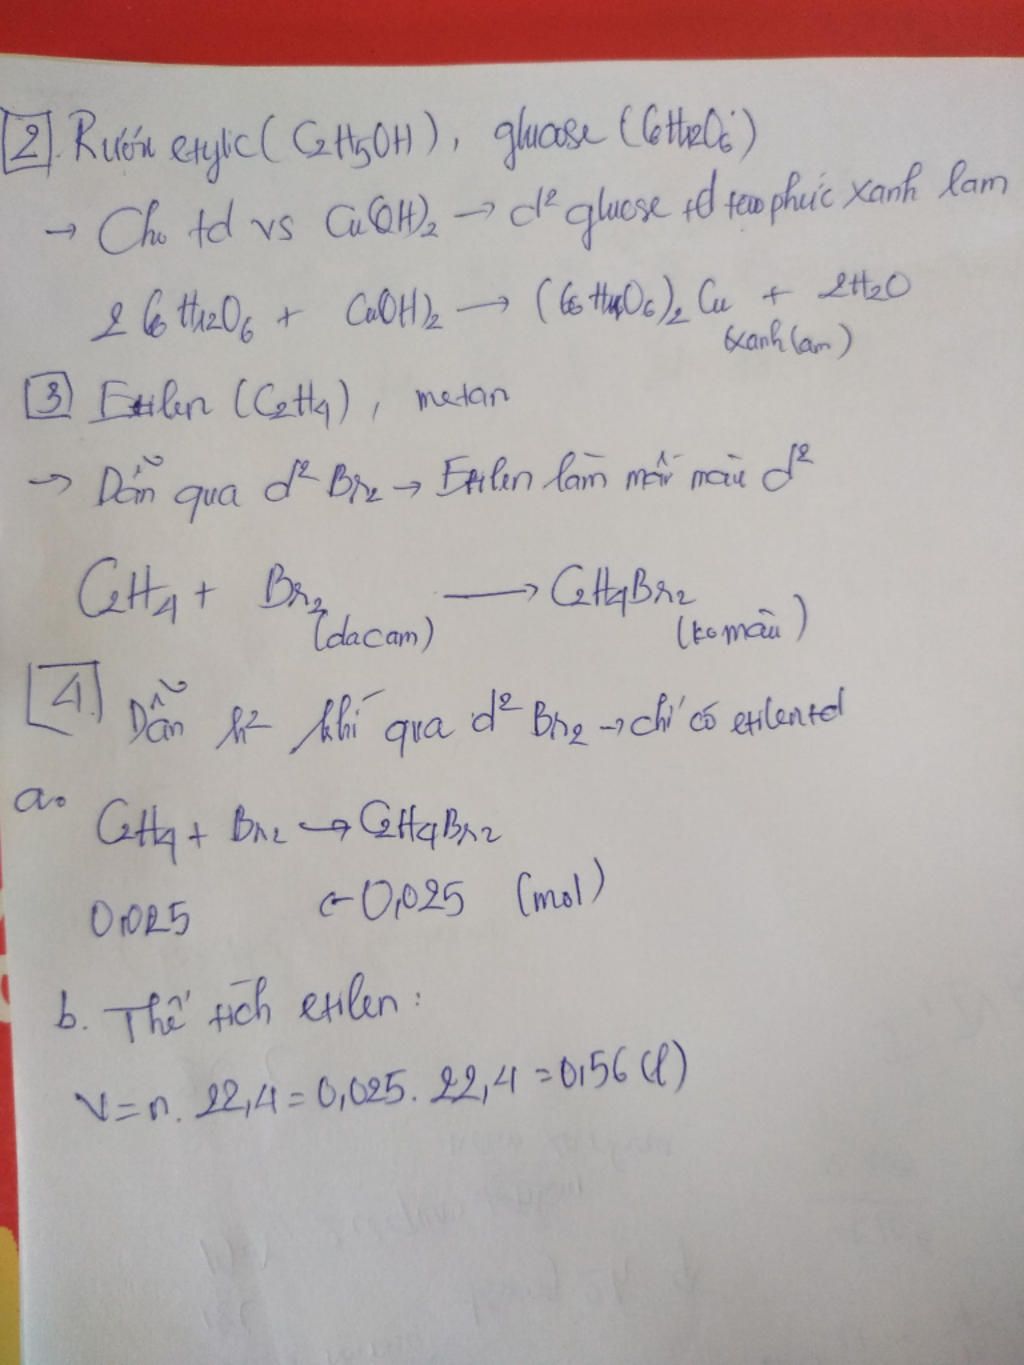 2. Rượu etylic (C2H5OH), glucose (C6H12O6)
→ Cho td vs Cu(OH)2 → d² glucose td tạo phức xanh lam
2 C6H12O6 + Cu(OH)2 → (C6H11O6)2 Cu + 2H2O
(xanh lam)
3 Etilen (C2H4), metan
→ Dẫn qua d² Br2 → Etilen làm mất màu d²
C2H4 + Br2 → C2H4Br2
(da cam) (ko màu)
4. Dẫn h² khí qua d² Br2 → chỉ có etilen td
a. C2H4 + Br2 → C2H4Br2
0,025 ← 0,025 (mol)
b. Thể tích etilen:
V = n. 22,4 = 0,025. 22,4 = 0,56 (l)